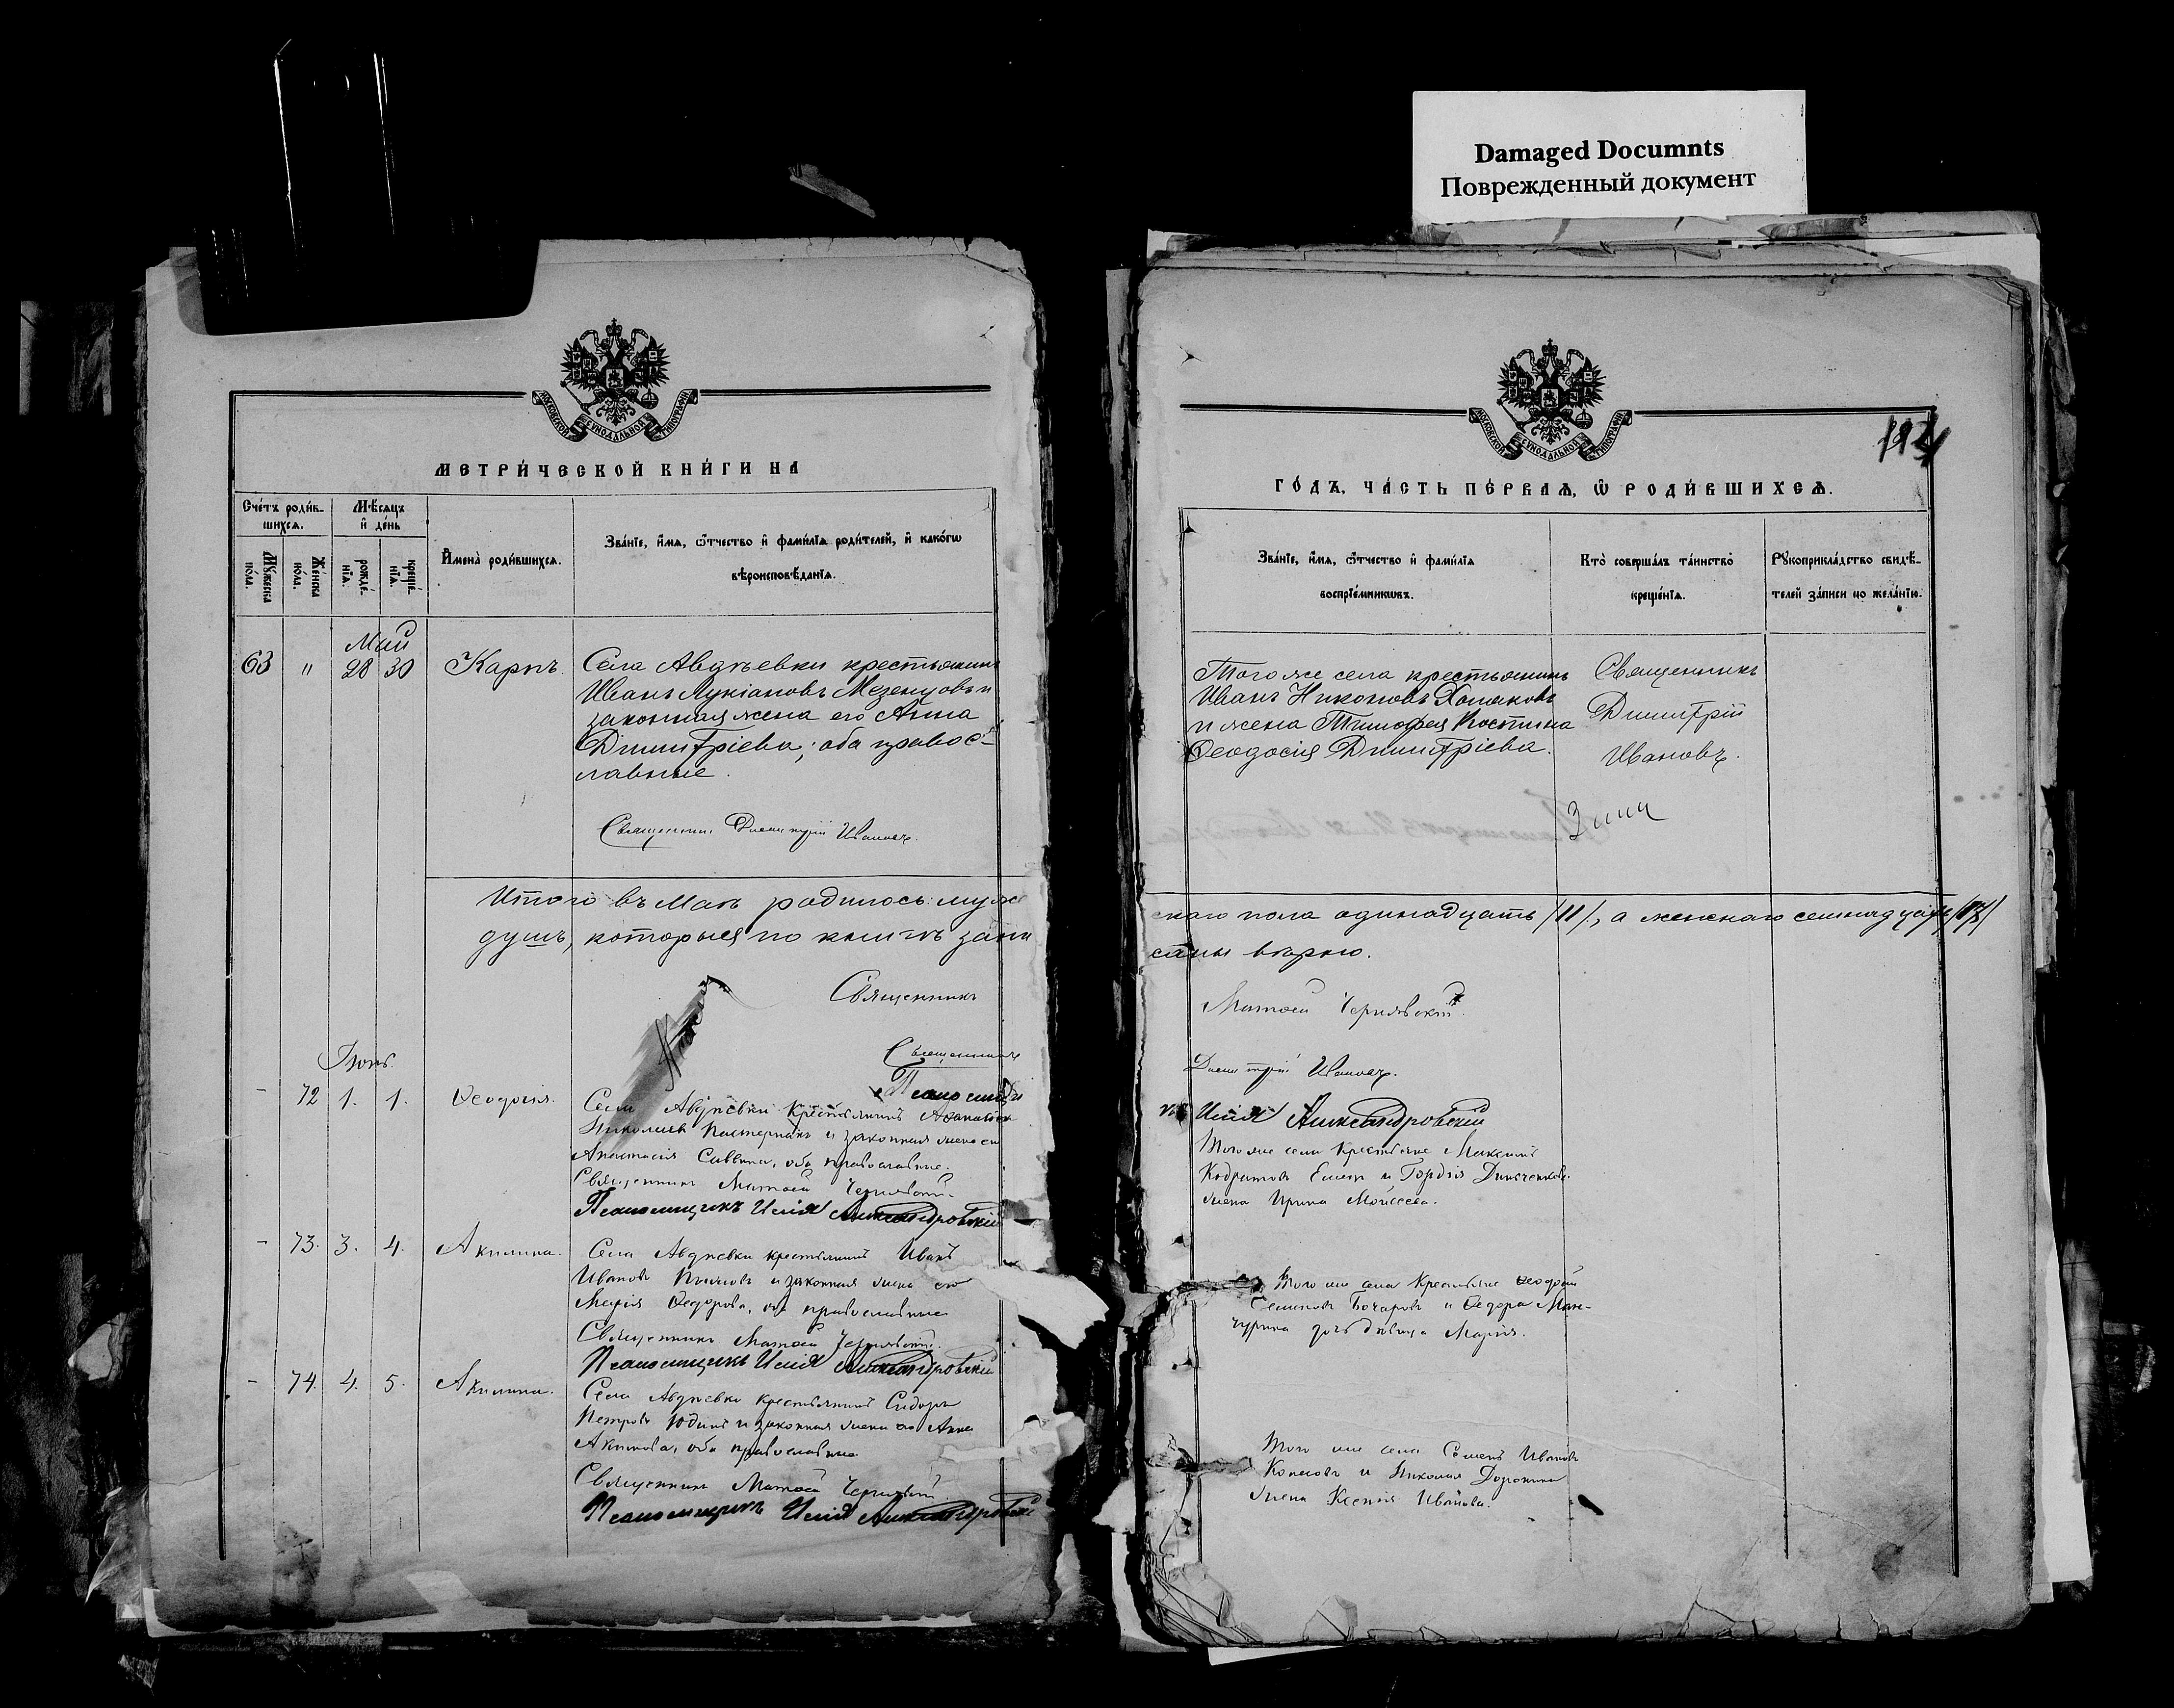 Damaged Documnts
Поврежденный документ
МОСКОВСКОЙ СѴНОДАЛЬНОЙ ТИПОГРАФІИ
МЕТРИ́ЧЕСКОЙ КНИ́ГИ НА
Сче́тъ роди́в-
шихсѧ.
Мѣ́сѧцъ
и҆ де́нь
Мꙋ́жеска
по́ла.
Же́нска
по́ла.
рожде́-
нїѧ.
креще́-
нїѧ.
И҆мена̀ роди́вшихсѧ.
Зва́нїе, и҆́мѧ, ѻ҆́тчество и҆ фами́лїѧ роди́телей, и҆ како́гѡ
вѣроисповѣ́данїѧ.
Май
63 " 28 30 Карпъ.
Села Авдѣевки крестьянинъ
Иванъ Лукіановъ Мезенцовъ и
законная жена его Анна
Димитріева; оба правос-
лавные.
Священникъ Димитрій Ивановъ.
Итого въ Маѣ родилось муже
душъ, которыя по книгѣ запи
Священникъ
Священникъ
Іюнь.
Псаломщи
- 72 1. 1. Ѳеодосія.
Села Авдѣевки крестьянинъ
Николаевъ Пастернакъ и законная жена его
Анастасія Саввина, оба православные.
Священникъ Матѳей Чернявскій.
Псаломщикъ Илія Александровскій
- 73. 3. 4. Акилина.
Села Авдѣевки крестьянинъ Иванъ
Ивановъ и законная жена его
Марія Ѳедорова, оба православные
Священникъ Матѳей Чернявскій.
Псаломщикъ Илія Александровскій
- 74. 4. 5. Акилина.
Села Авдѣевки крестьянинъ Сидоръ
Петровъ Юдинъ и законная жена его Анна
Акимова, оба православные
Священникъ Матѳей Чернявскій.
Псаломщикъ Илія Александровскій
МОСКОВСКОЙ СѴНОДАЛЬНОЙ ТИПОГРАФІИ
ГО́ДЪ, ЧА́СТЬ ПЕ́РВАѦ, Ѽ РОДИ́ВШИХСѦ.
Зва́нїе, и҆́мѧ, ѻ҆́тчество и҆ фами́лїѧ
воспрїе́мникѡвъ.
Кто̀ соверша́лъ та́инство
креще́нїѧ.
Рꙋкоприкла́дство свидѣ́-
телей за́писи по жела́нїю.
Того же села крестьянинъ
Иванъ Никоновъ Хомяковъ
и жена Тимофея Костина
Ѳеодосія Димитріева.
Священникъ
Димитрій
Ивановъ.
скаго пола одинадцать /11/, а женскаго семнадцать /17/
саны вѣрно.
Матѳей Чернявскій.
Димитрій Ивановъ.
Илія Александровскій
Того же села крестьяне Максимъ
и Гордія
жена Ирина Моисеева.
Того же села крестьяне Ѳеодоръ
Бочаровъ и Ѳедора Ман-
чурина дочь дѣвица Марія.
Того же села Семенъ Ивановъ
и Николая Доронина
жена Ксенія Иванова.